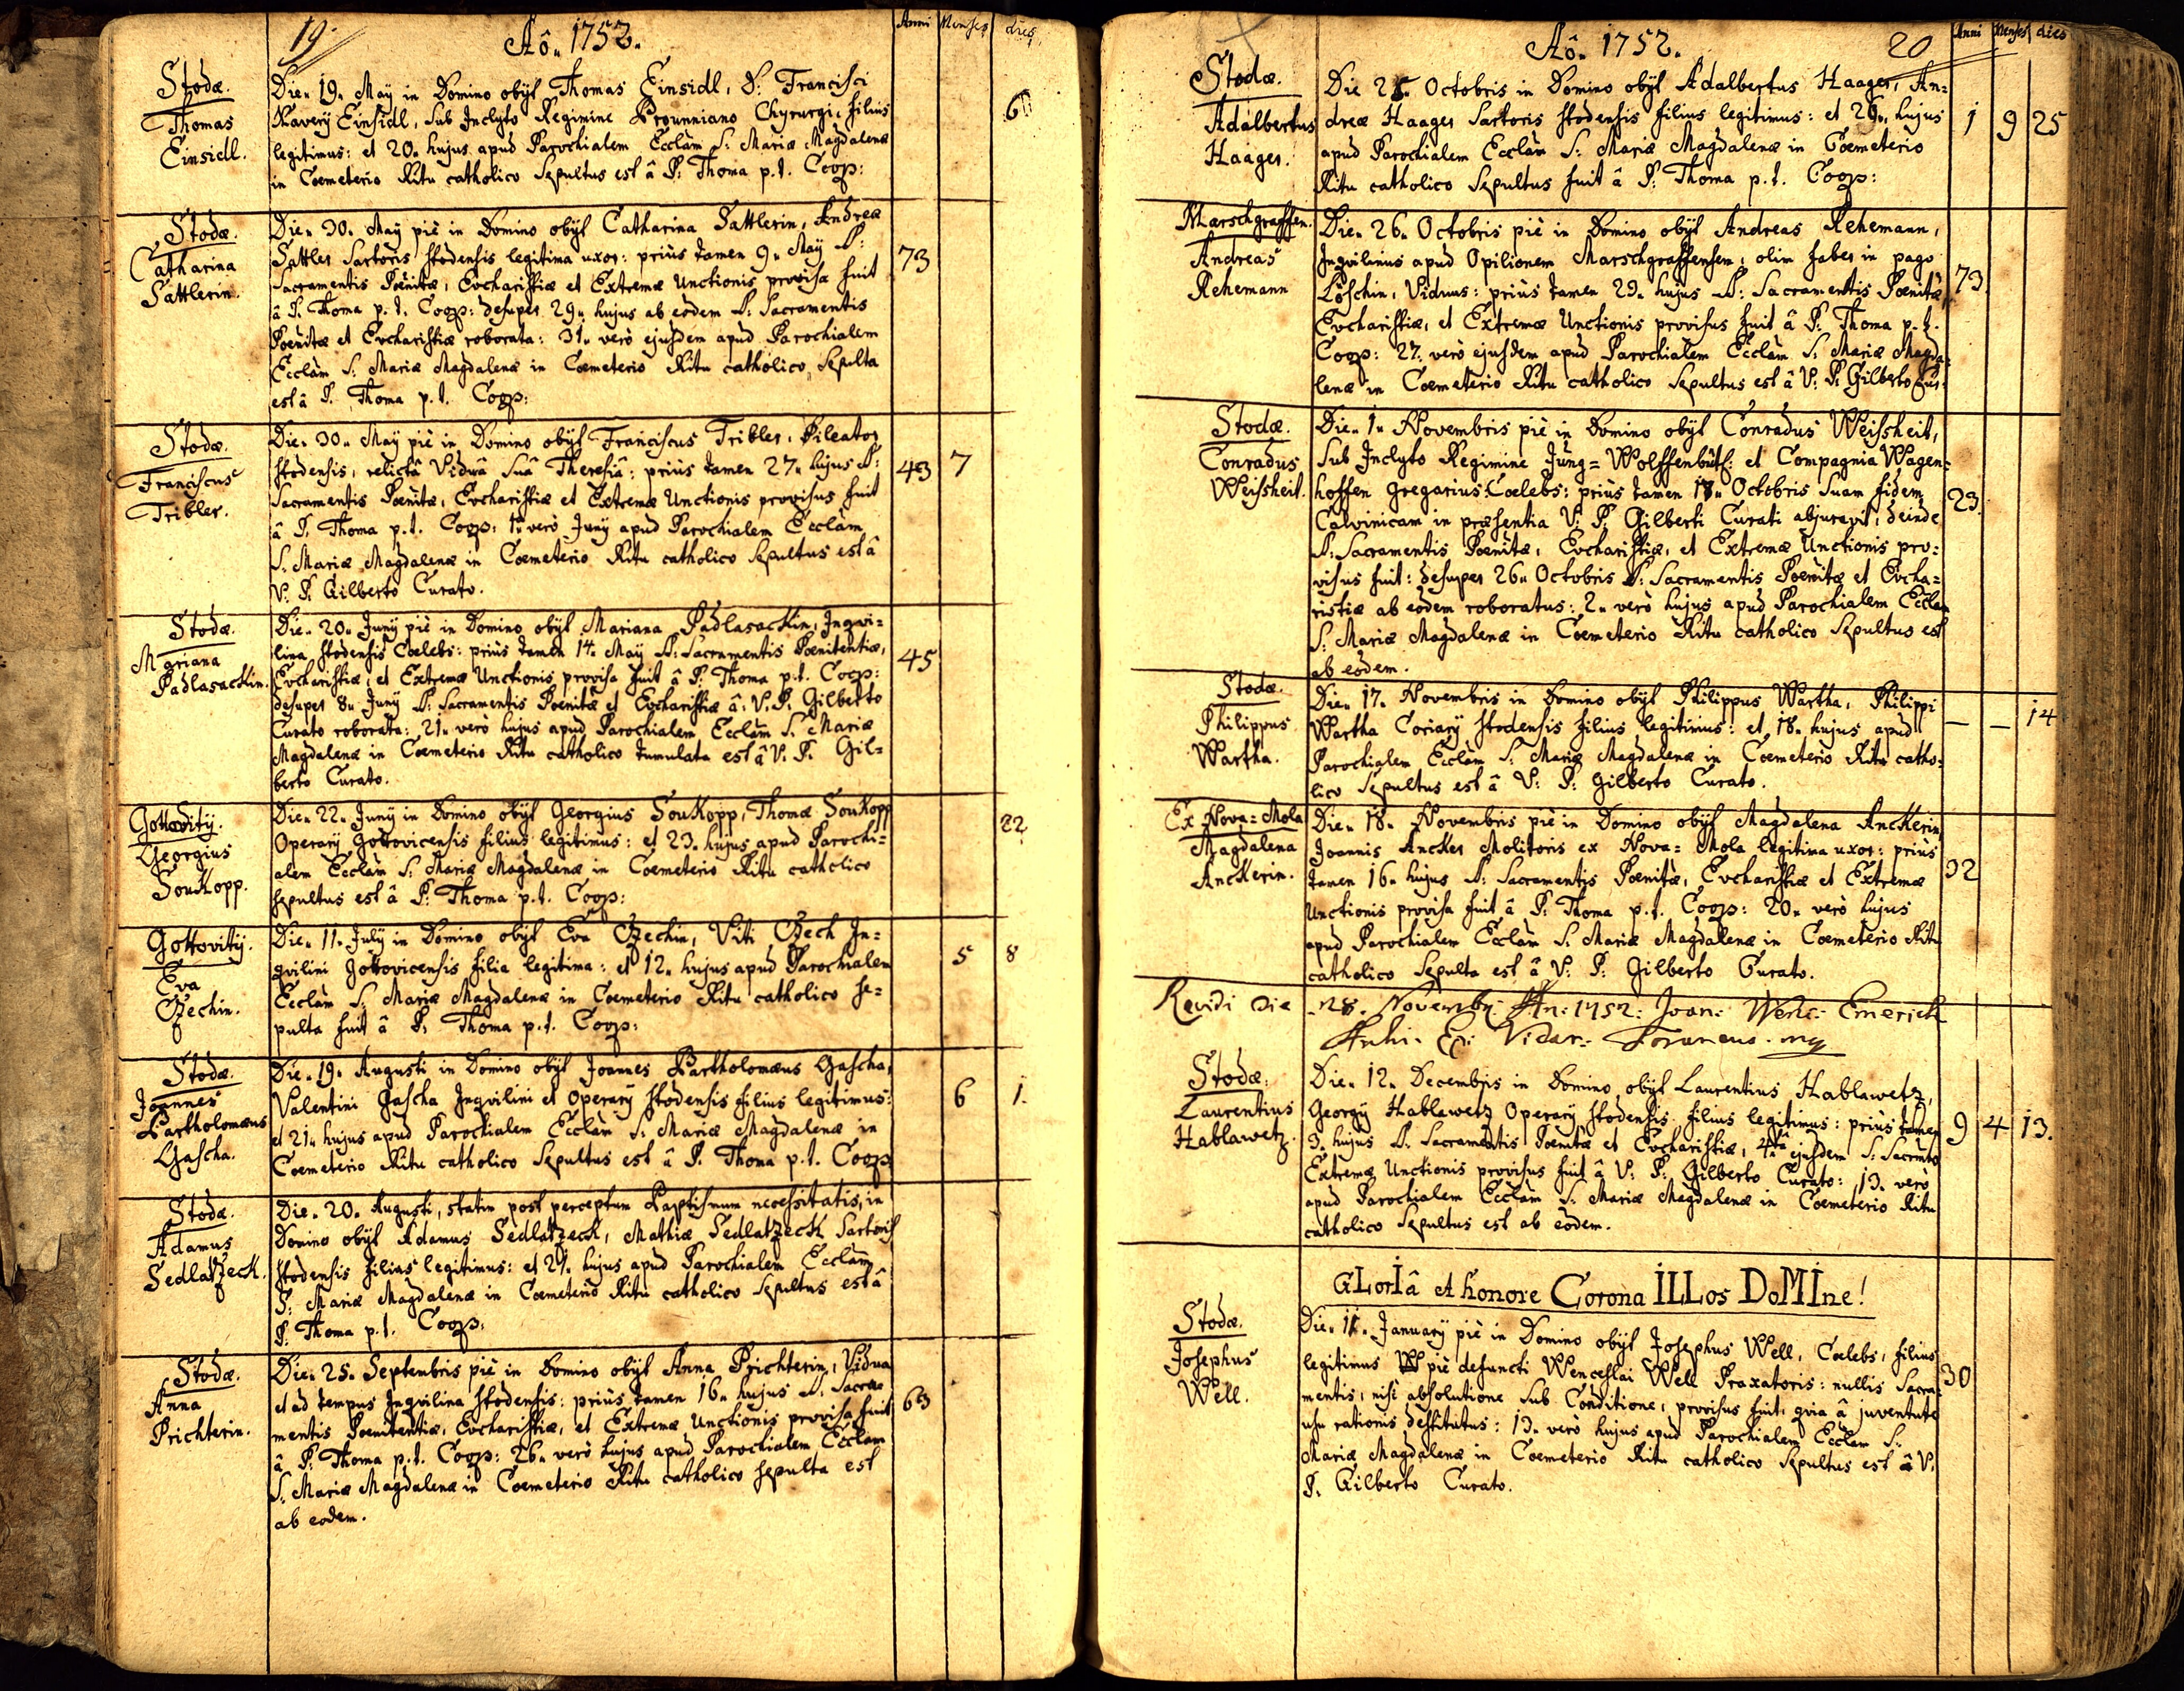 19.
Aô. 1752.
Anni Menses dies
Stodæ.
Thomas
Einsidl.
Die. 19. Maÿ in Domino obÿt Thomas Einsidl, D: Francisci
Xaverÿ Einsidl, sub Inclyto Regimine Prounniano Chyrurgi, filius
legitimus: et 20. hujus apud Parochialem Ecclãm S: Mariæ Magdalenæ
in Coemeterio Ritu catholico Sepultus est â P: Thoma p.t. Coop:
Stodæ.
Catharina
Sattlerin.
Die. 30. Maÿ piè in Domino obÿt Catharina Sattlerin, Andreæ
Sattler Sartoris Stodensis legitima uxor: priùs tamen 9. Maÿ S:
Sacramentis Poenitæ, Evcharistiæ et Extremæ Unctionis provisa fuit
â P. Thoma p.t. Coop: desuper 29. hujus ab eodem S: Sacramentis
Poenitæ et Evcharistiæ roborata: 31. verò ejusdem apud Parochialem
Ecclãm S: Mariæ Magdalenæ in Coemeterio Ritu catholico Sepulta
est â P. Thoma p.t. Coop:
73
Stodæ.
Franciscus
Tribler.
Die. 30. Maÿ piè in Domino obÿt Franciscus Tribler, Pileator
Stodensis, relictâ Viduâ Suâ Theresiâ: priùs tamen 27. hujus S:
Sacramentis Poenitæ, Evcharistiæ et Extremæ Unctionis provisus fuit
â P. Thoma p.t. Coop: 1. verò Junÿ apud Parochialem Ecclãm
S. Mariæ Magdalenæ in Coemeterio Ritu catholico Sepultus est â
V. P. Gilberto Curato.
43 7
Stodæ.
Mariana
Padlasackin.
Die. 20. Junÿ piè in Domino obÿt Mariana Padlasackin, Inqvi=
lina Stodensis Coelebs: priùs tamen 14. Maÿ S: Sacramentis Poenitentiæ,
Evcharistiæ, et Extremæ Unctionis provisa fuit â P: Thoma p.t. Coop:
desuper 8. Junÿ S: Sacramentis Poenitæ et Evcharistiæ â: V. P. Gilberto
Curato roborata: 21. verò hujus apud Parochialem Ecclãm S. Mariæ
Magdalenæ in Coemeterio Ritu catholico tumulata est â V. P. Gil=
berto Curato.
45
Gottovitÿ.
Georgius
Soukopp.
Die. 22. Junÿ in Domino obÿt Georgius Soukopp, Thomæ Soukopp
Operarÿ Gottovicensis filius legitimus: et 23. hujus apud Parochi=
alem Ecclãm S: Mariæ Magdalenæ in Coemeterio Ritu catholico
sepultus est â P: Thoma p.t. Coop:
22
Gottovitÿ.
Eva
Czechin.
Die. 11. Julÿ in Domino obÿt Eva Czechin, Viti Czech In=
qvilini Gottovicensis filia legitima: et 12. hujus apud Parochialem
Ecclãm S: Mariæ Magdalenæ in Coemeterio Ritu catholico se=
pulta fuit â P: Thoma p.t. Coop:
5 8
Stodæ.
Joannes
Bartholomæus
Gascha.
Die. 19. Augusti in Domino obÿt Joannes Bartholomæus Gascha,
Valentini Gascha Inqvilini et Operarÿ Stodensis filius legitimus:
et 21. hujus apud Parochialem Ecclãm S: Mariæ Magdalenæ in
Coemeterio Ritu catholico Sepultus est â P. Thoma p.t. Coop
6 1.
Stodæ.
Adamus
Sedlatzeck.
Die. 20. Augusti, statim post perceptum Baptismum necessitatis, in
Domino obÿt Adamus Sedlatzeck, Mathiæ Sedlatzeck Sartoris
Stodensis filius legitimus: et 21. hujus apud Parochialem Ecclãm
S: Mariæ Magdalenæ in Coemeterio Ritu catholico Sepultus est â
P. Thoma p.t. Coop:
Stodæ.
Anna
Prichterin.
Die. 25. Septembris piè in Domino obÿt Anna Prichterin, Vidua
et ad tempus Inqvilina Stodensis: priùs tamen 16. hujus S. Sacra=
mentis Poenitentiæ, Evcharistiæ, et Extremæ Unctionis provisa fuit
â P: Thoma p.t. Coop: 26. verò hujus apud Parochialem Ecclãm
S. Mariæ Magdalenæ in Coemeterio Ritu catholico sepulta est
ab eodem.
63
Aô. 1752.
20
Anni Menses dies
Stodæ.
Adalbertus
Haager.
Die 25. Octobris in Domino obÿt Adalbertus Haager, An=
dreæ Haager Sartoris Stodensis filius legitimus: et 26. hujus
apud Parochialem Ecclãm S: Mariæ Magdalenæ in Coemeterio
Ritu catholico Sepultus fuit â P: Thoma p.t. Coop:
1 9 25
Marschgraffen.
Andreas
Rehemann
Die. 26. Octobris piè in Domino obÿt Andreas Rehemann,
Inqvilinus apud Opilionem Marschgraffensem, olim faber in pago
Löschin, Viduus: priùs tamen 23. hujus S: Sacramentis Poenitæ,
Evcharistiæ, et Extremæ Unctionis provisus fuit â P: Thoma p.t.
Coop: 27. verò ejusdem apud Parochialem Ecclãm S. Mariæ Magda=
lenæ in Coemeterio Ritu catholico Sepultus est â V: P: Gilberto Cur:
73.
Stodæ.
Conradus
Weissheit.
Die. 1. Novembris piè in Domino obÿt Conradus Weissheit,
Sub Inclyto Regimine Jung=Wolffenbütt: et Compagnia Wagen=
hoffen gregarius Coelebs: priùs tamen 17. Octobris suam fidem
Calvinicam in præsentia V: P: Gilberti Curati abjuravit, deinde
S: Sacramentis Poenitæ, Evcharistiæ, et Extremæ Unctionis pro=
visus fuit: desuper 26. Octobris S: Sacramentis Poenitæ et Evcha=
ristiæ ab eodem roboratus: 2. verò hujus apud Parochialem Ecclãm
S. Mariæ Magdalenæ in Coemeterio Ritu catholico Sepultus est
ab eodem.
23.
Stodæ.
Philippus
Wartha.
Die. 17. Novembris in Domino obÿt Philippus Wartha, Philippi
Wartha Coriarÿ Stodensis filius legitimus: et 18. hujus apud
Parochialem Ecclãm S: Mariæ Magdalenæ in Coemeterio Ritu catho=
lico Sepultus est â V: P: Gilberto Curato.
— — 14
Ex Nova=Mola
Magdalena
Anckerin.
Die. 18. Novembris piè in Domino obÿt Magdalena Anckerin
Joannis Ancker Molitoris ex Nova=Mola legitima uxor: priùs
tamen 16. hujus S: Sacramentis Poenitæ, Evcharistiæ et Extremæ
Unctionis provisa fuit â P: Thoma p.t. Coop: 20. verò hujus
apud Parochialem Ecclãm S. Mariæ Magdalenæ in Coemeterio Ritu
catholico Sepulta est â V: P: Gilberto Curato.
32
Revidi die 28. Novembr: An: 1752: Joan: Wenc: Emerich
Vicar: Foraneus. mp
Stodæ.
Laurentius
Hablawetz.
Die. 12. Decembris in Domino obÿt Laurentius Hablawetz,
Georgÿ Hablawetz Operarÿ Stodensis filius legitimus: priùs tamen
3. hujus S. Sacramentis Poenitæ et Evcharistiæ, 4tâ ejusdem S: Sacrmto
Extremæ Unctionis provisus fuit â V: P: Gilberto Curato: 13. verò
apud Parochialem Ecclãm S: Mariæ Magdalenæ in Coemeterio Ritu
catholico Sepultus est ab eodem.
9 4 13.
GLorIâ et honore Corona ILLos DoMIne!
Stodæ.
Josephus
Well.
Die. 11. Januarÿ piè in Domino obÿt Josephus Well, Coelebs, filius
legitimus piè defuncti Wenceslai Well Praxatoris: nullis Sacra=
mentis, nisi absolutione sub Conditione, provisus fuit, qvia â juventute
usu rationis destitutus: 13. verò hujus apud Parochialem Ecclãm S:
Mariæ Magdalenæ in Coemeterio Ritu catholico Sepultus est â V.
P. Gilberto Curato.
30